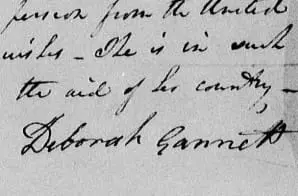 person from the United
– She is in such
the aid of her country –
Deborah Gannett